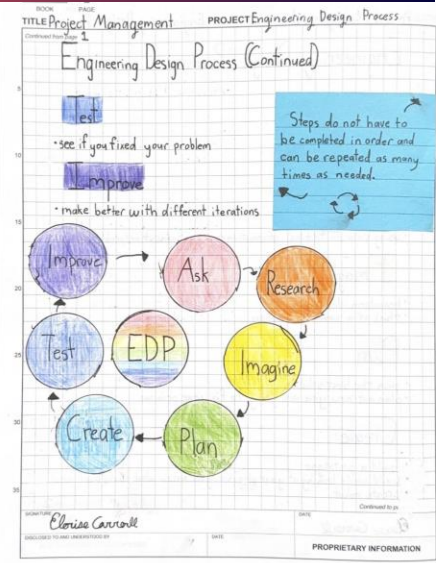 BOOK PAGE
TITLE Project Management PROJECT Engineering Design Process
Continued from page 1
Engineering Design Process (Continued)
Test
• see if you fixed your problem
Improve
• make better with different iterations
Steps do not have to
be completed in order and
can be repeated as many
times as needed.
Improve
Ask
Research
Test
EDP
Imagine
Create
Plan
5
10
15
20
25
30
35
Continued to page
SIGNATURE
Eloise Carroll
DATE
DISCLOSED TO AND UNDERSTOOD BY
DATE
PROPRIETARY INFORMATION